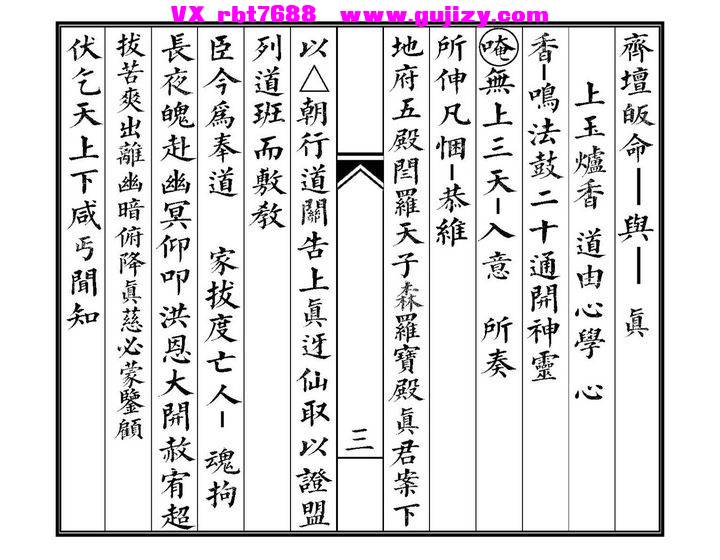 VX rbt7688 www.gujizy.com
齊壇皈命——與— 眞
上玉爐香 道由心學 心
香-鳴法鼓二十通開神靈
唵無上三天-入意 所奏
所伸凡悃-恭維
地府五殿閆羅天子森羅寶殿眞君案下
三
以△朝行道關告上眞迓仙取以證盟
列道班而敷教
臣今爲奉道 家拔度亡人- 魂拘
長夜魄赴幽冥仰叩洪恩大開赦宥超
拔苦爽出離幽暗俯降眞慈必蒙鑒顧
伏乞天上下咸丐聞知